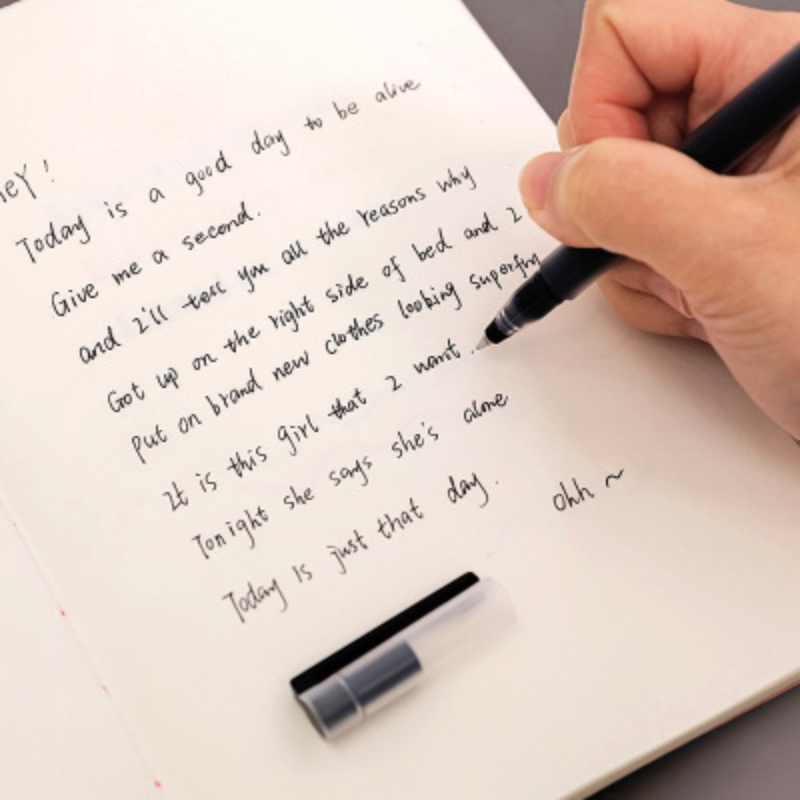 HeY!
Today is a good day to be alive
Give me a second.
and I'll tell you all the reasons why
Got up on the right side of bed and I
Put on brand new clothes looking superfly
It is this girl that I want.
Tonight she says she's alone
Today is just that day. ohh ~